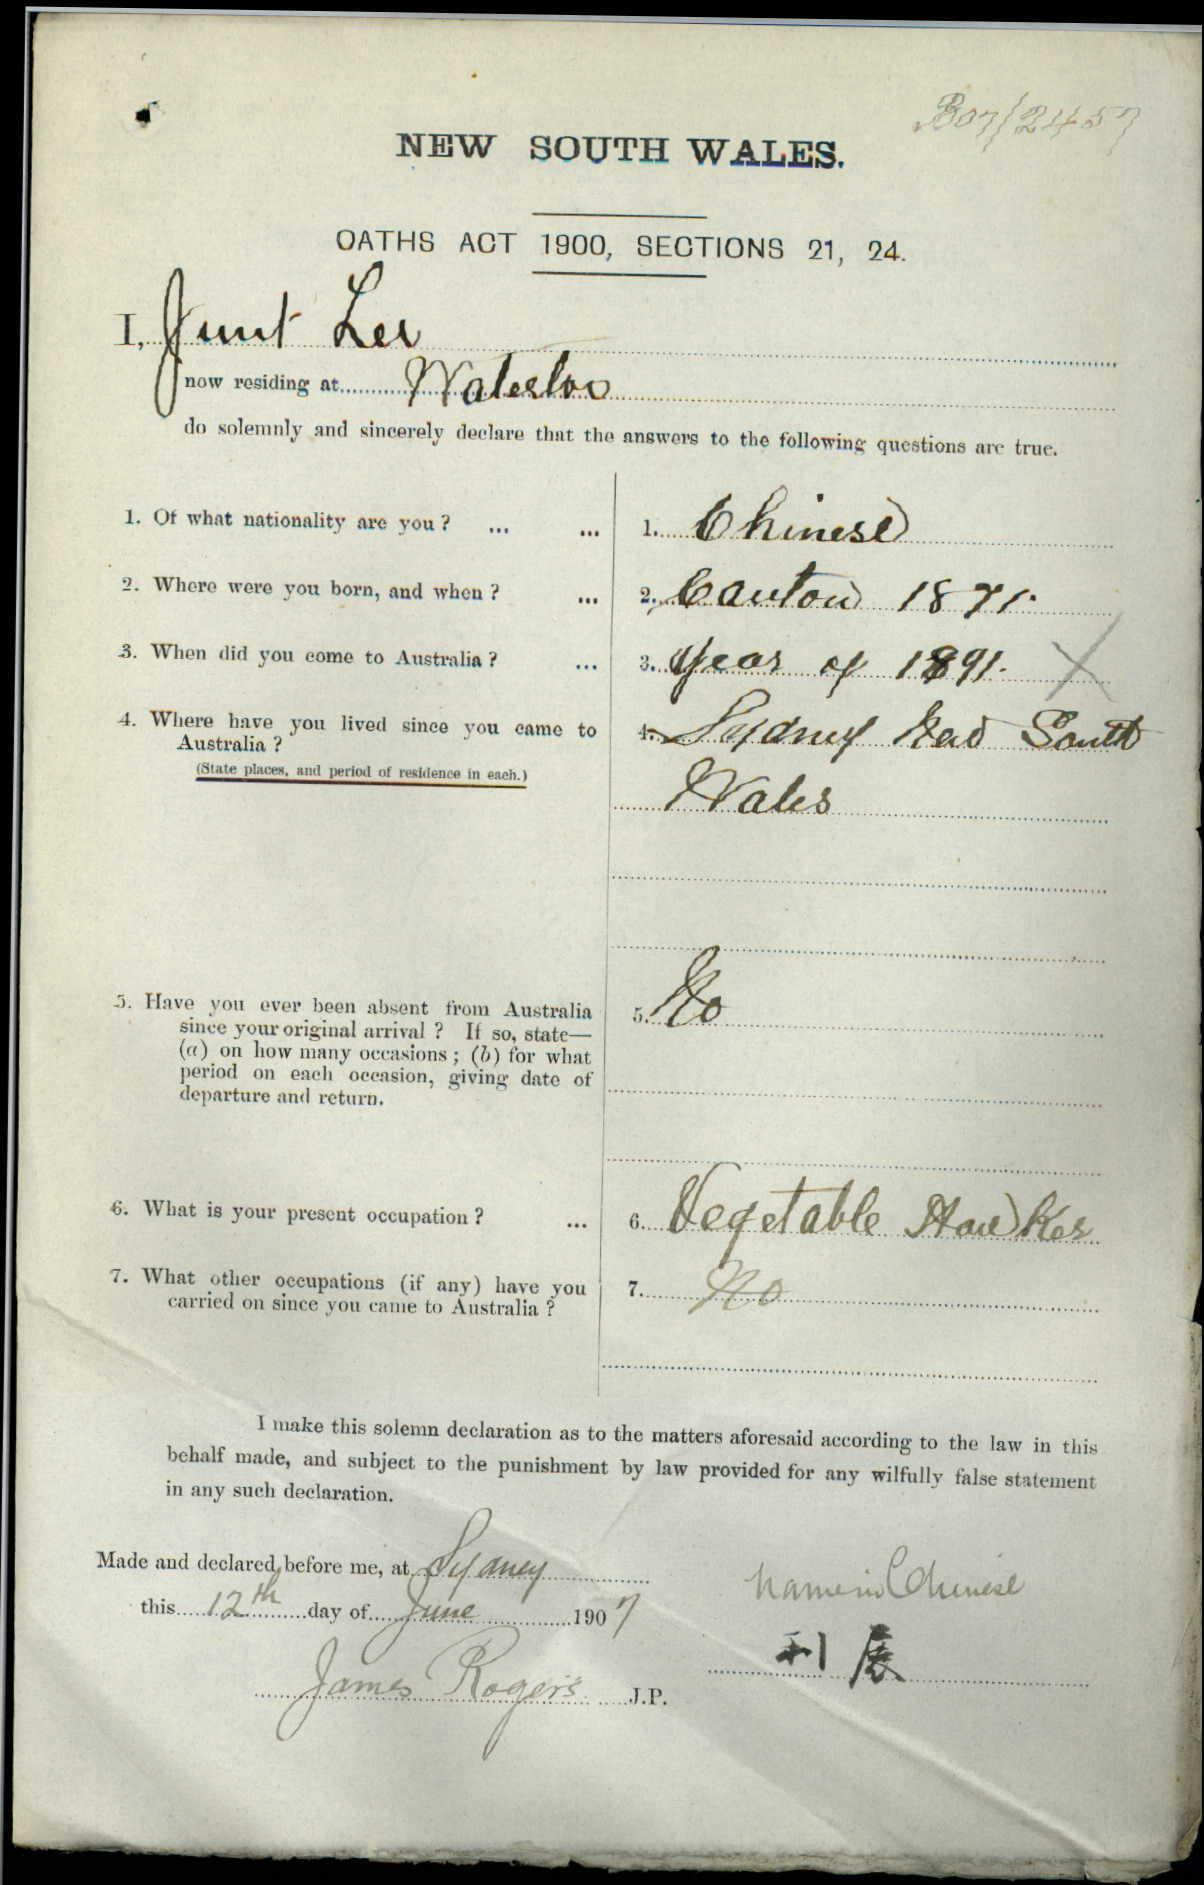 B07/2457
NEW SOUTH WALES.
OATHS ACT 1900, SECTIONS 21, 24.
I, Junt Lee
now residing at Waterloo
do solemnly and sincerely declare that the answers to the following questions are true.
1. Of what nationality are you? ... ... 1. Chinese
2. Where were you born, and when? ... 2. Canton 1871.
3. When did you come to Australia? ... 3. Year of 1891. X
4. Where have you lived since you came to 4. Sydney New South
Australia?
(State places, and period of residence in each.)
Wales
5. Have you ever been absent from Australia 5. No
since your original arrival? If so, state—
(a) on how many occasions; (b) for what
period on each occasion, giving date of
departure and return.
6. What is your present occupation? ... 6. Vegetable Hawker
7. What other occupations (if any) have you 7. No
carried on since you came to Australia?
I make this solemn declaration as to the matters aforesaid according to the law in this
behalf made, and subject to the punishment by law provided for any wilfully false statement
in any such declaration.
Made and declared before me, at Sydney
Name in Chinese
this 12th day of June 1907
James Rogers J.P.